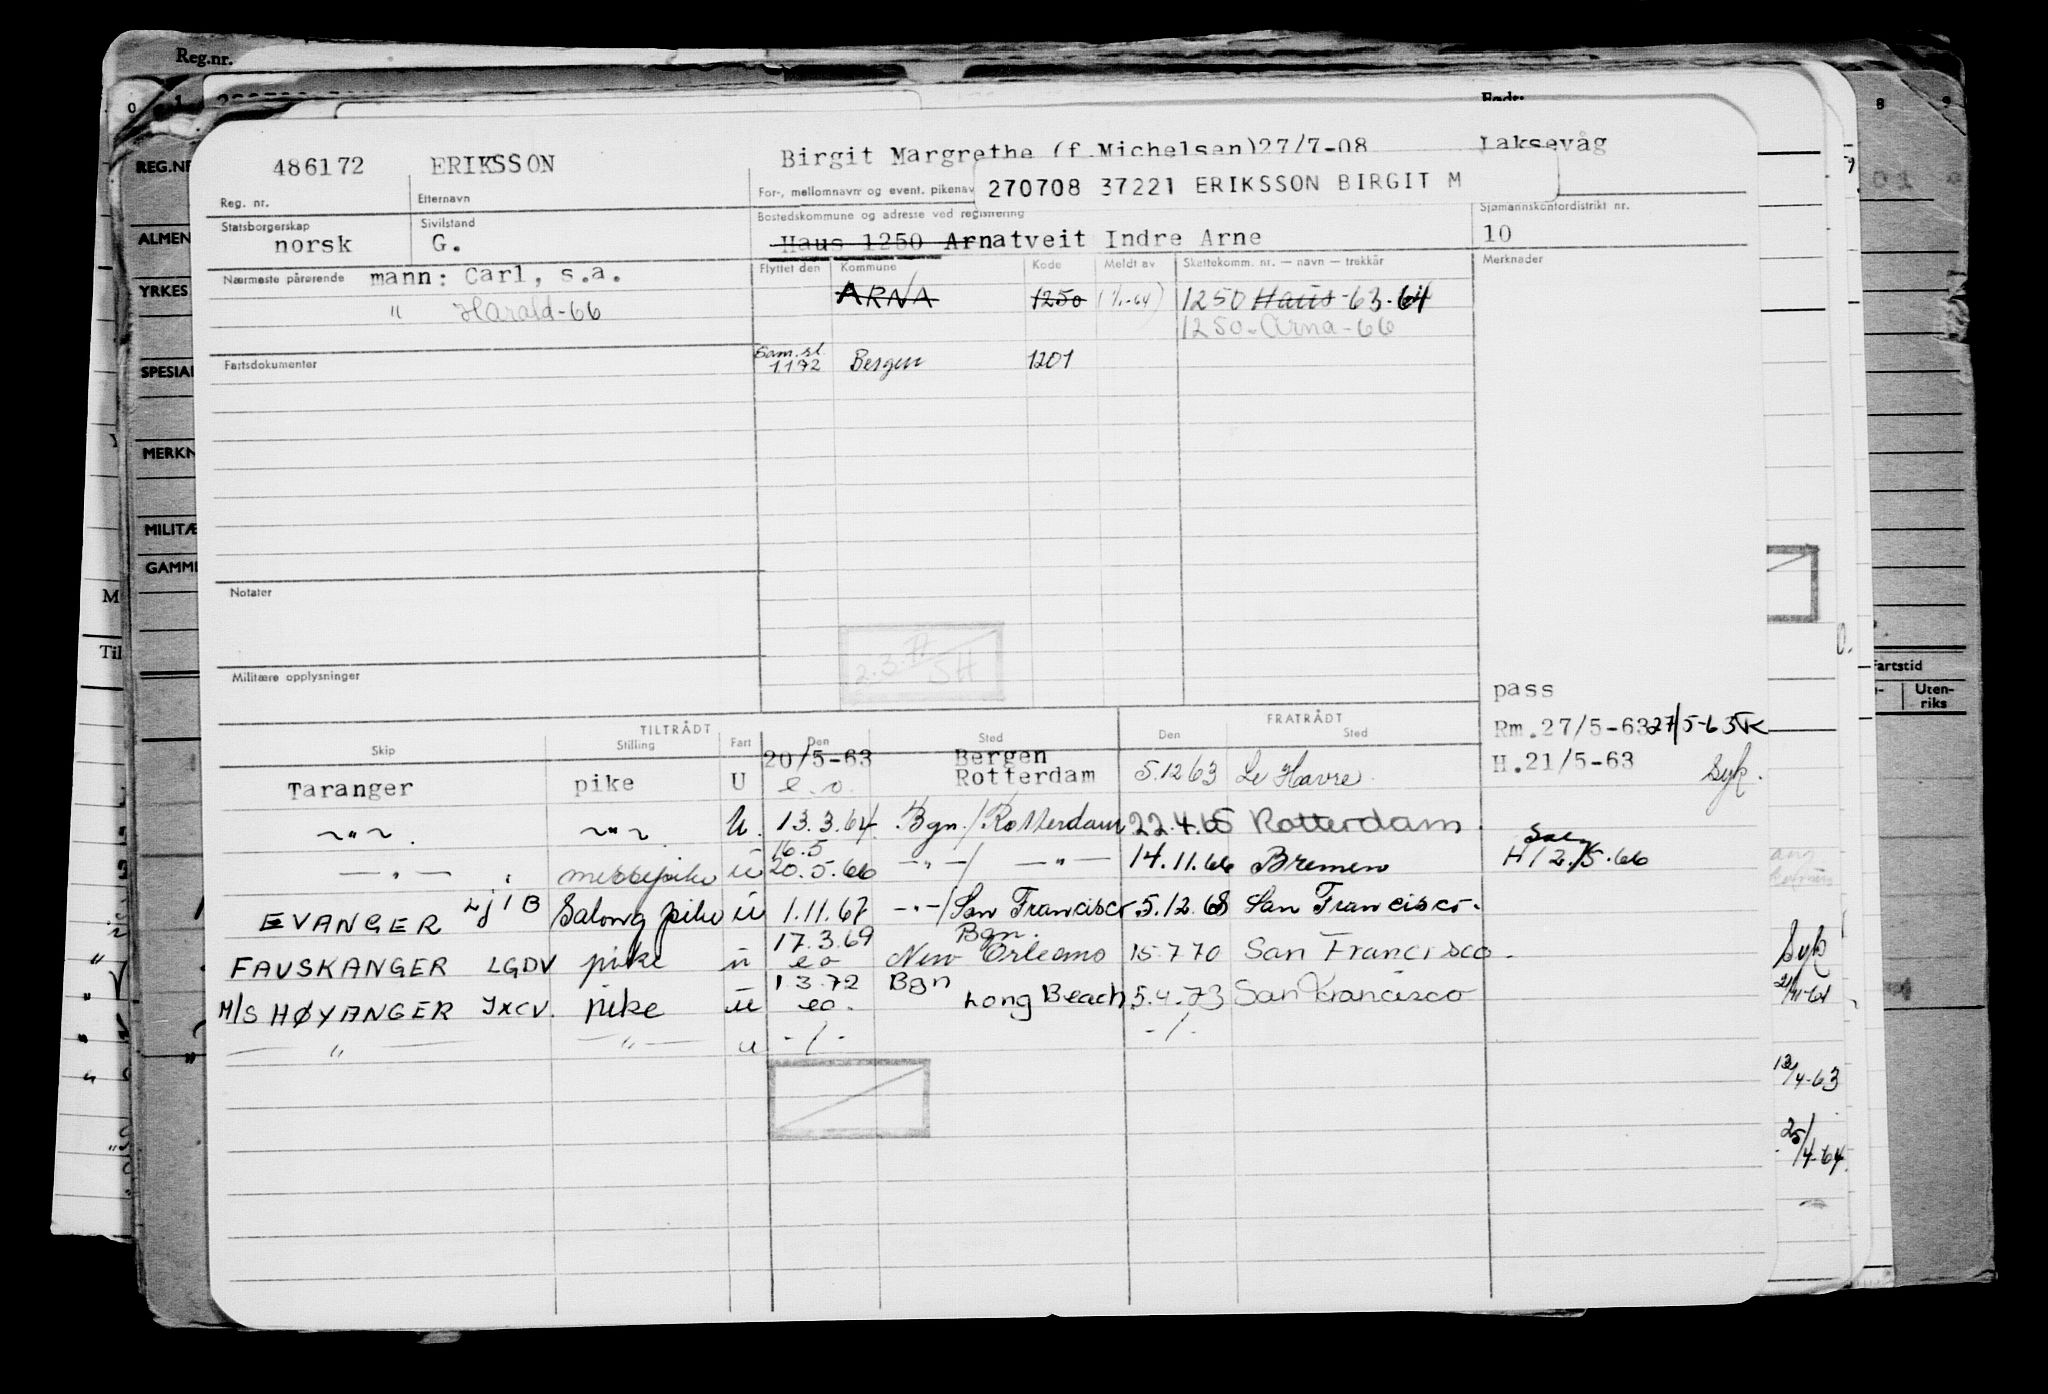 Reg.nr.
Født:
486172 ERIKSSON Birgit Margrethe (f.Michelsen)27/7-08 Laksevåg
Reg. nr. Etternavn For-, mellomnavn og event. pikenav
270708 37221 ERIKSSON BIRGIT M
Statsborgerskap Sivilstand Bostedskommune og adresse ved registrering Sjømannskontordistrikt nr.
norsk G. Haus 1250 Arnatveit Indre Arne 10
Nærmeste pårørende mann: Carl, s.a. Flyttet den Kommune Kode Meldt av Skattekomm. nr. — navn — trekkår Merknader
" Harald-66 ARNA 1250 (1/1-64) 1250 Haus-63-64
1250-Arna-66
Fartsdokumenter Sam.sl. 1.1 72 Bergen 1201
Notater
Militære opplysninger
pass
TILTRÅDT FRATRÅDT
Skip Stilling Fart Den Sted Den Sted
Rm.27/5-63 27/5-63 K
20/5-63 Bergen
Taranger pike U e.o. Rotterdam 5.12 63 Le Havre H.21/5-63 Syk.
~"~ ~"~ U. 13.3.64 Bgn./Rotterdam 22.4.65 Rotterdam.
16.5
—"— messepike ü 20.5.66 —"—/ —"— 14.11.66 Bremen H 12/5.66
EVANGER LjIB Salong pike ü 1.11.67 -"-/San Francisco 5.12.68 San Francisco.
17.3.69 Bgn.
FAUSKANGER LGDV pike ü eo New Orleans 15 7 70 San Francisco.
1.3.72 Bgn
M/S HØYANGER JXCV. pike ü eo. Long Beach 5.4.73 San Francisco
—"— —"— u -/- -/-
REG.NR
ALMEN
YRKES
SPESIAL
MERKN
MILITÆ
GAMME
Fartstid
Uten-
riks
Syk
21/11-61
13/4-63
25/4-64